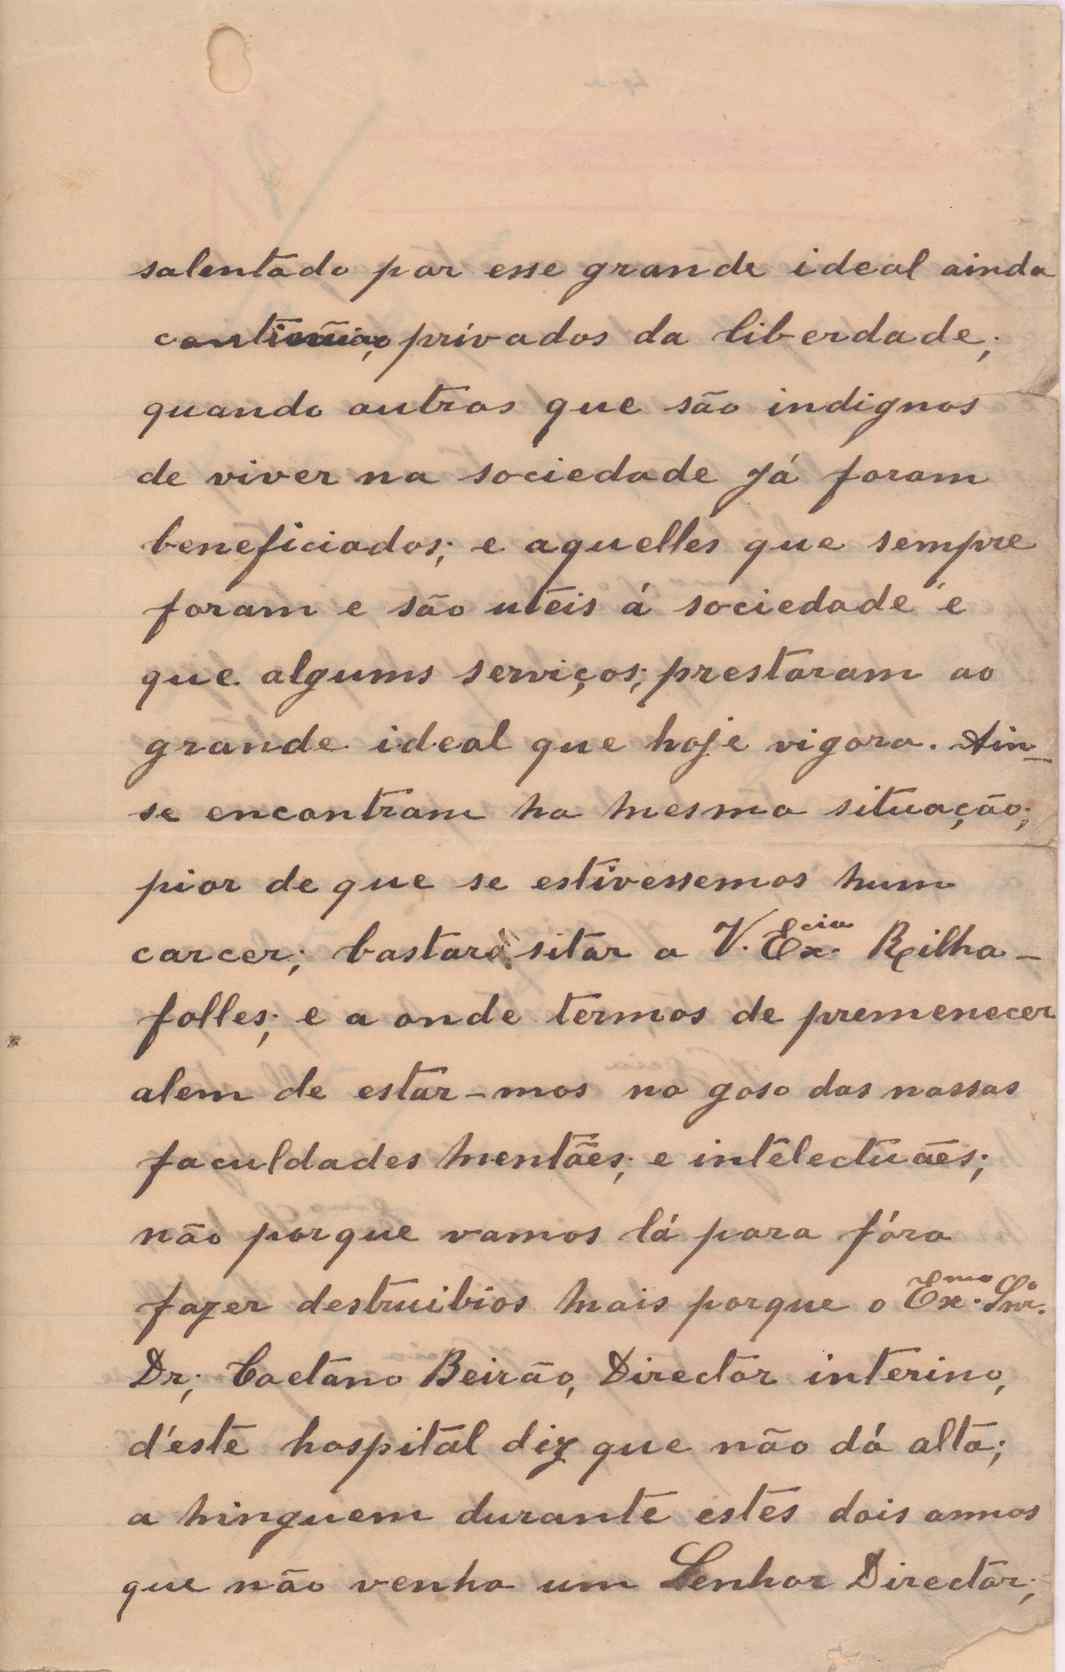 salentado por esse grande ideal ainda
continúão, privados da liberdade;
quando outros que são indignos
de viver na sociedade já foram
beneficiados; e aquelles que sempre
foram e são uteis á sociedade e
que algums serviços; prestaram ao
grande ideal que hoje vigora. Ain_
se encontram ha mesma situação;
pior de que se estivessemos hum
carcer; bastará sitar a V. Ex.cia Rilha-
folles; e a onde termos de premenecer
alem de estar-mos no goso das nossas
faculdades mentães; e intêlectuães;
não porque vamos lá para fóra
fazer destruibios mais porque o Ex.mo Snr.
Dr; Caetano Beirão, Director interino,
d'este hospital diz que não dá alta;
a hinguem durante estes dois annos
que não venha um Senhor Director;